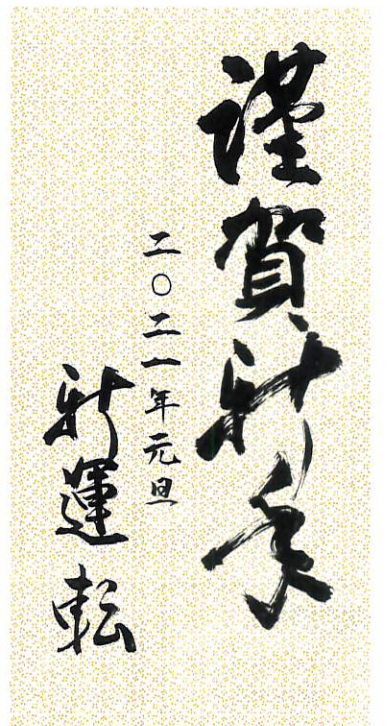 謹賀新年
二〇二一年元旦
新運転